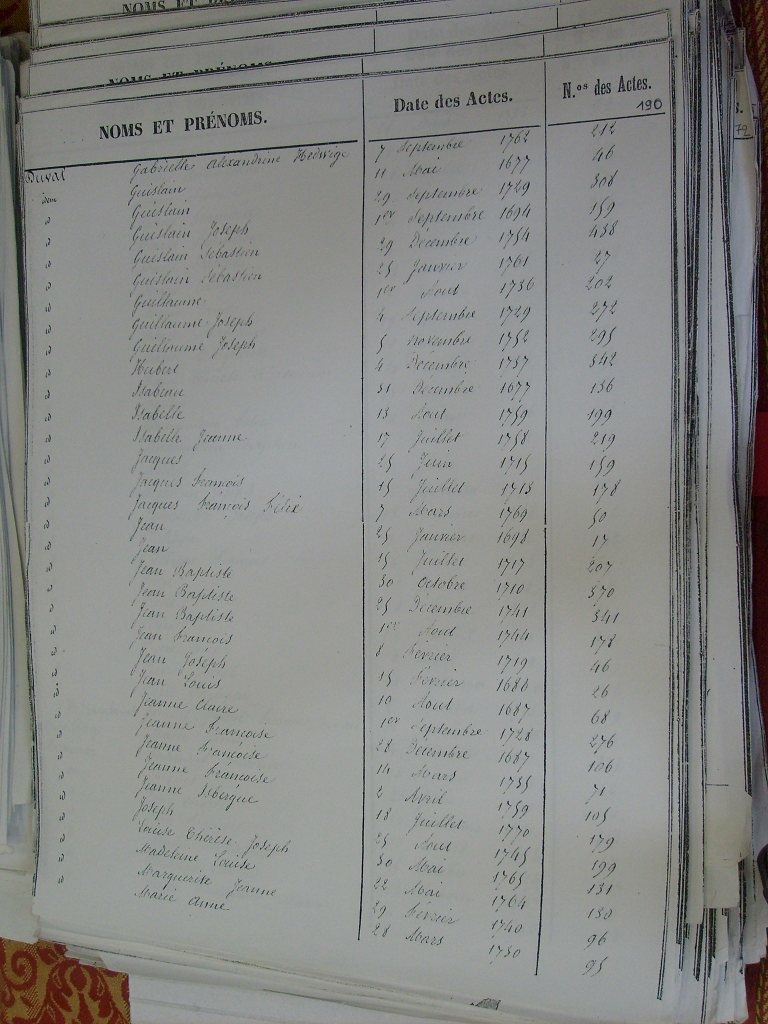 NOMS ET PRÉNOMS.
NOMS ET PRÉNOMS. Date des Actes. N.os des Actes.
190
72
Duval Gabrielle Alexandrine Hedwige 7 Septembre 1762 212
idem Guislain 11 Mai 1677 46
d Guislain 29 Septembre 1729 308
d Guislain Joseph 1er Septembre 1694 159
d Guislain Sebastien 29 Décembre 1754 438
d Guislain Sebastien 25 Janvier 1761 27
d Guillaume 1er Aout 1736 202
d Guillaume Joseph 4 Septembre 1729 272
d Guillaume Joseph 5 Novembre 1752 295
d Hubert 4 Decembre 1737 342
d Isabeau 31 Décembre 1677 136
d Isabelle 13 Aout 1759 199
d Isabelle Jeanne 17 Juillet 1758 219
d Jacques 25 Juin 1715 159
d Jacques Francois 15 Juillet 1713 178
d Jacques François Félix 7 Mars 1769 50
d Jean 25 Janvier 1698 17
d Jean 15 Juillet 1717 207
d Jean Baptiste 30 Octobre 1710 370
d Jean Baptiste 25 Décembre 1741 341
d Jean Baptiste 1er Aout 1744 178
d Jean Francois 8 Février 1719 46
d Jean Joseph 15 Février 1686 26
d Jean Louis 10 Aout 1687 68
d Jeanne Claire 1er Septembre 1728 276
d Jeanne Francoise 28 Decembre 1687 106
d Jeanne Francoise 14 Mars 1735 71
d Jeanne Francoise 2 Avril 1759 105
d Jeanne Isbergue 18 Juillet 1770 179
d Joseph 25 Aout 1745 199
d Louise Thérèse Joseph 30 Mai 1765 131
d Madeleine Louise 22 Mai 1764 130
d Marguerite Jeanne 29 Février 1740 96
d Marie Anne 28 Mars 1730 95